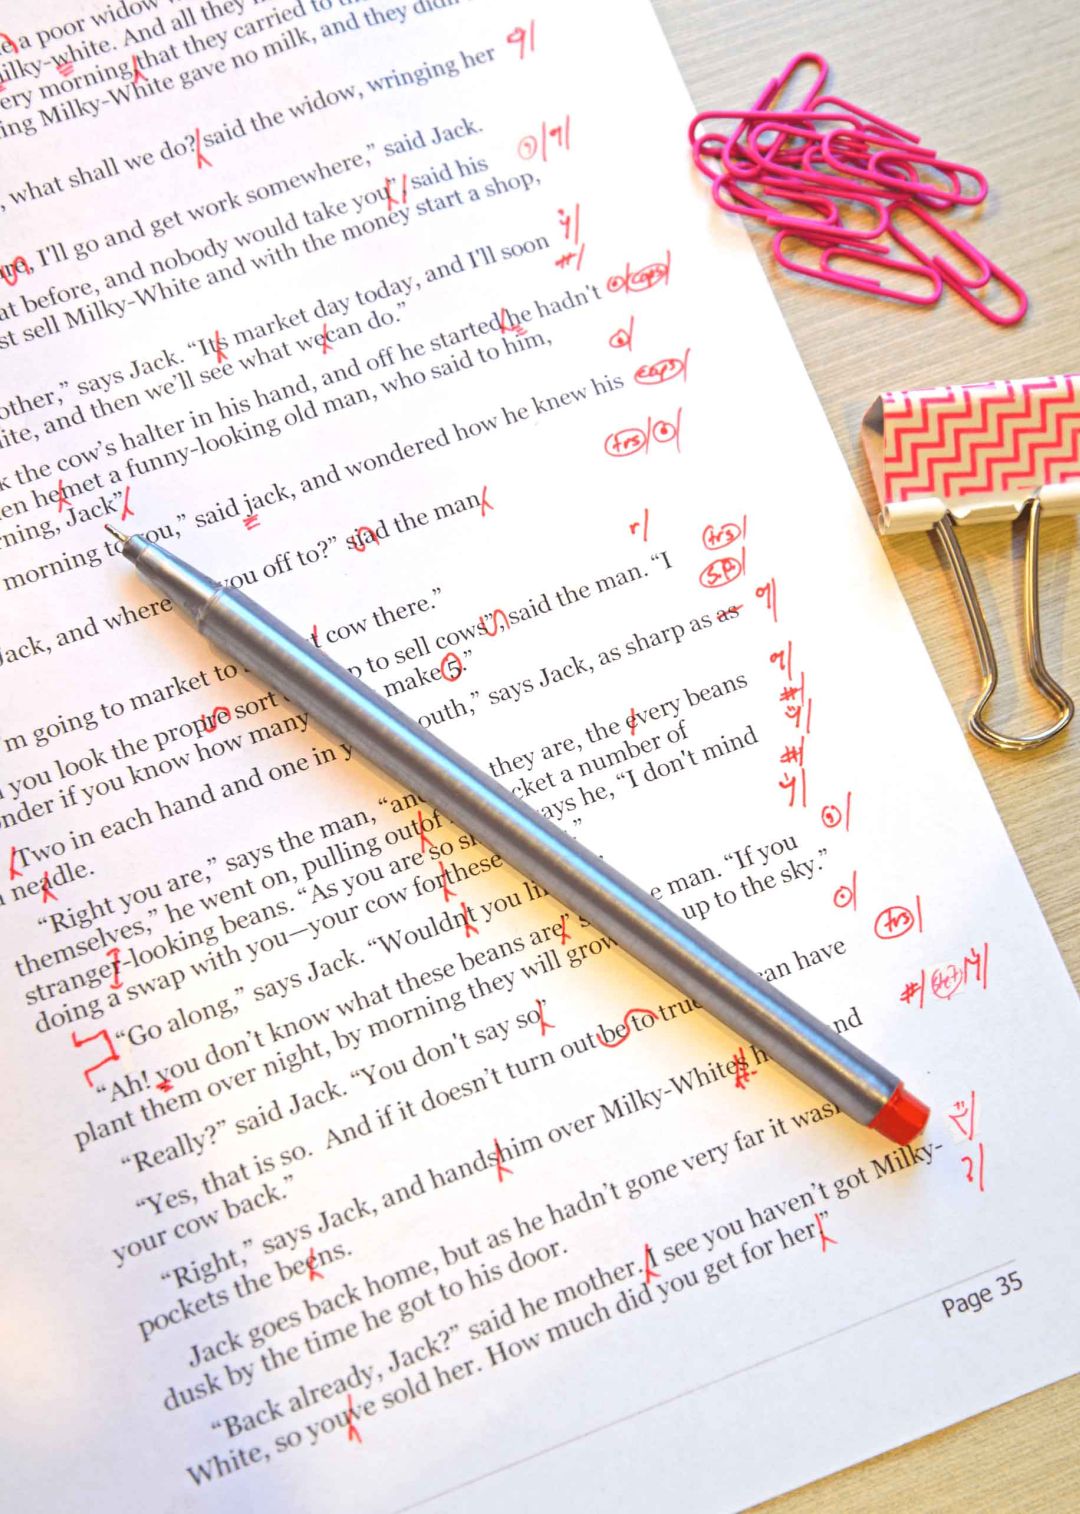 a poor widow
milky-white. And all they h
ery morning that they carried to
ing Milky-White gave no milk, and they didn
, what shall we do? said the widow, wringing her
I'll go and get work somewhere,” said Jack.
at before, and nobody would take you”, said his
st sell Milky-White and with the money start a shop,
other,” says Jack. “Its market day today, and I'll soon
ite, and then we'll see what wecan do.”
k the cow's halter in his hand, and off he started he hadn't
en hemet a funny-looking old man, who said to him,
rning, Jack”
morning to you,” said jack, and wondered how he knew his
Jack, and where you off to?” siad the man
'm going to market to cow there.”
you look the propre sort p to sell cows”, said the man. “I
nder if you know how many make 5.”
Two in each hand and one in y outh,” says Jack, as sharp as as
a neadle.
“Right you are,” says the man, “and they are, the every beans
themselves,” he went on, pulling outof cket a number of
stranger-looking beans. “As you are so s ays he, “I don't mind
doing a swap with you—your cow forthese .”
“Go along,” says Jack. “Wouldnt you li
“Ah! you don't know what these beans are” s e man. “If you
plant them over night, by morning they will grow up to the sky.”
“Really?” said Jack. “You don't say so”
“Yes, that is so. And if it doesn't turn out be to true can have
your cow back.”
“Right,” says Jack, and handshim over Milky-Whites h and
pockets the beens.
Jack goes back home, but as he hadn't gone very far it was
dusk by the time he got to his door.
“Back already, Jack?” said he mother. I see you haven't got Milky-
White, so youve sold her. How much did you get for her”
Page 35
caps
caps
trs
r
trs
S.P.
#
#
#
trs
#
stet